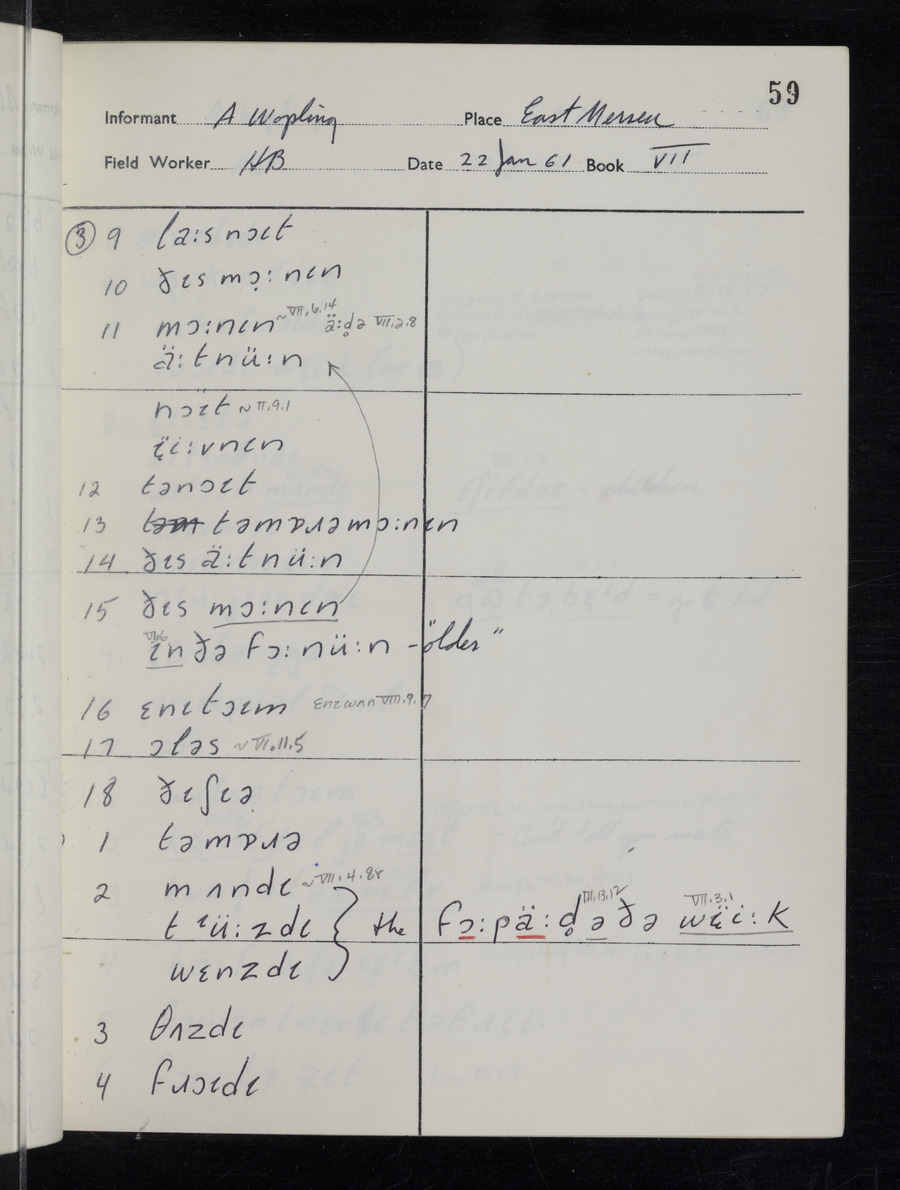 59
Informant A Wopling Place East Mersea
Field Worker HB Date 22 Jan 61 Book VII
③ 9 la:s nɔɪt
10 ðɪs mɔ̣:nɪn
11 mɔ:nɪn ~VII.6.14 ä:d̥ə VII.2.8
ä:tnü:n
nɔ̈ɪt ~VI.9.1
ɛ̈i:vnɪn
12 tənɔɪt
13 təmɒɹəmɔ:nɪn
14 ðɪs ä:tnü:n
15 ðɪs mɔ:nɪn
VI.6 ɪn ðə fɔ:nü:n - "older"
16 ɛnɪtɔɪm ɛnɪwʌn VIII.9.7
17 ɔləs ~VI.11.5
18 ðɪʃɪə
1 təmɒɹə
2 mʌndɪ ~VII.4.8r
tᶦü:zdɪ } the fɔ:pä:d̥ə ðə wɛ̈i:k III.13.12 VII.3.1
wɛnzdɪ
3 θʌzdɪ
4 fɹɔɪdɪ